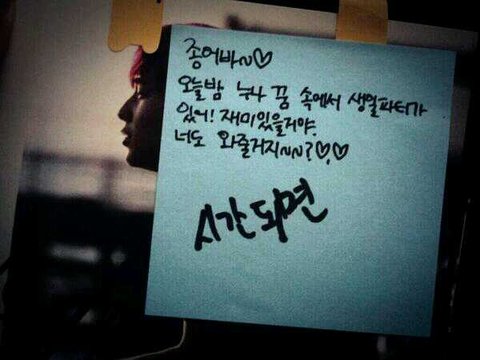 종어바~♡
오늘밤 누나 꿈 속에서 생일파티가
있어! 재미있을거야.
너도 와줄거지~~?♡.♡
시간되면